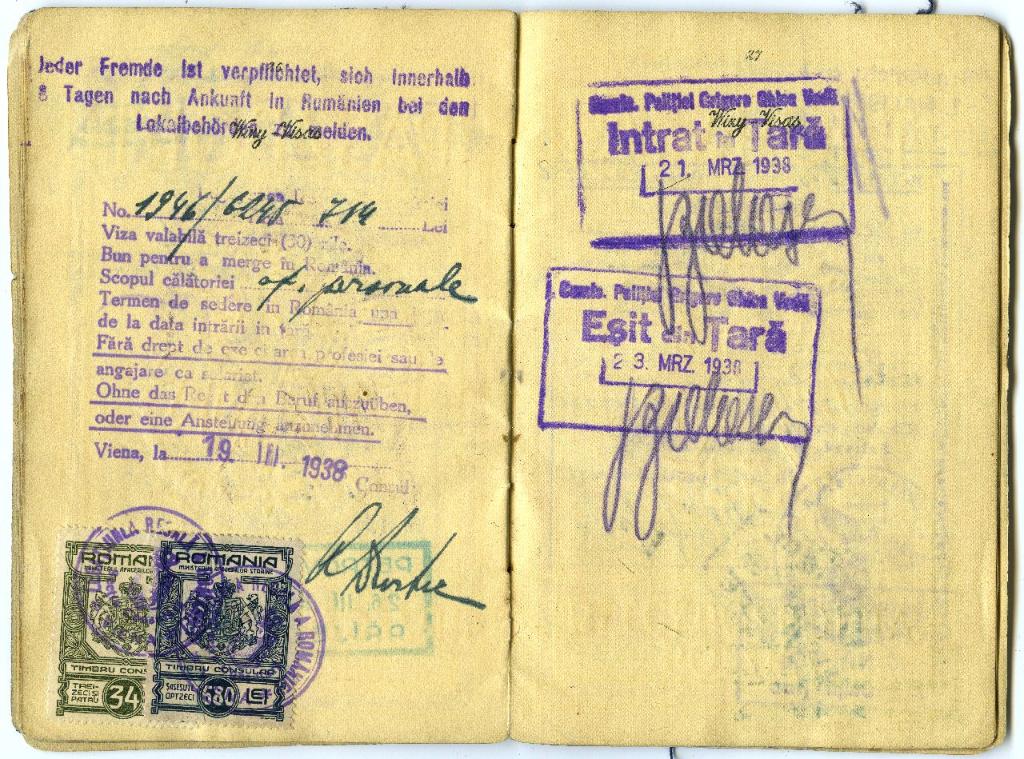 Jeder Fremde ist verpflichtet, sich innerhalb
8 Tagen nach Ankunft in Rumänien bei den
Lokalbehörden zu melden.
Winy Visas
No. 1946/ 714 Lei
Viza valabilă treizeci (30) zile.
Bun pentru a merge în România.
Scopul călătoriei
Termen de ședere în România una
de la data intrării în țară.
Fără drept de exercitarea profesiei sau de
angajare ca salariat.
Ohne das Recht den Beruf auszuüben,
oder eine Anstellung anzunehmen.
Viena, la 19. III. 1938
Consul:
ROMANIA
TIMBRU CONS
TREI-
ZECISI
PATRU
34
ROMANIA
MINISTERUL AFACERILOR STRAINE
TIMBRU CONSULAR
SASESUTE
OPTZECI
580 LEI
27
Comis. Poliției Grigore Ghica Vodă
Winy Visas
Intrat în Țară
21. MRZ. 1938
Comis. Poliției Grigore Ghica Vodă
Eșit din Țară
23. MRZ. 1938